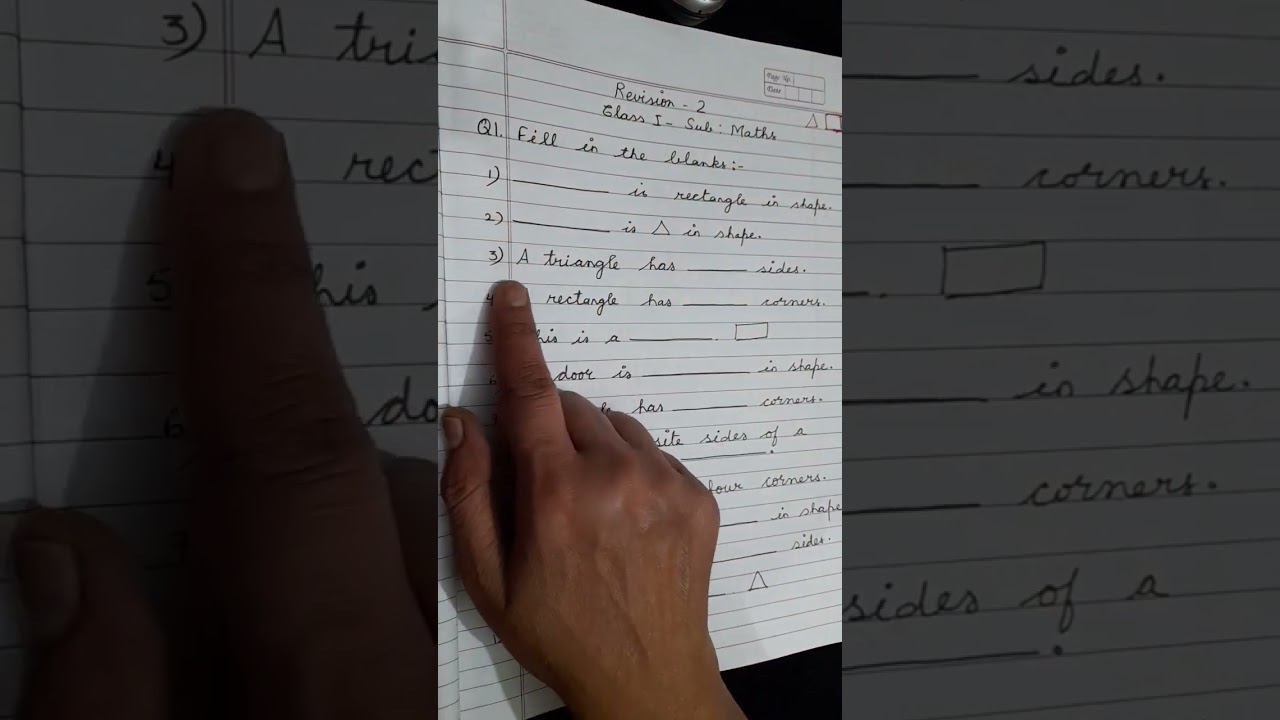 Page No.
Date
Revision - 2
Class I - Sub : Maths
Q1. Fill in the blanks:-
1) ________ is rectangle in shape.
2) ________ is △ in shape.
3) A triangle has ______ sides.
4 rectangle has ______ corners.
5 his is a ________. ▭
6 door is ________ in shape.
has ______ corners.
site sides of a
________.
four corners.
______ in shape
______ sides.
____ △